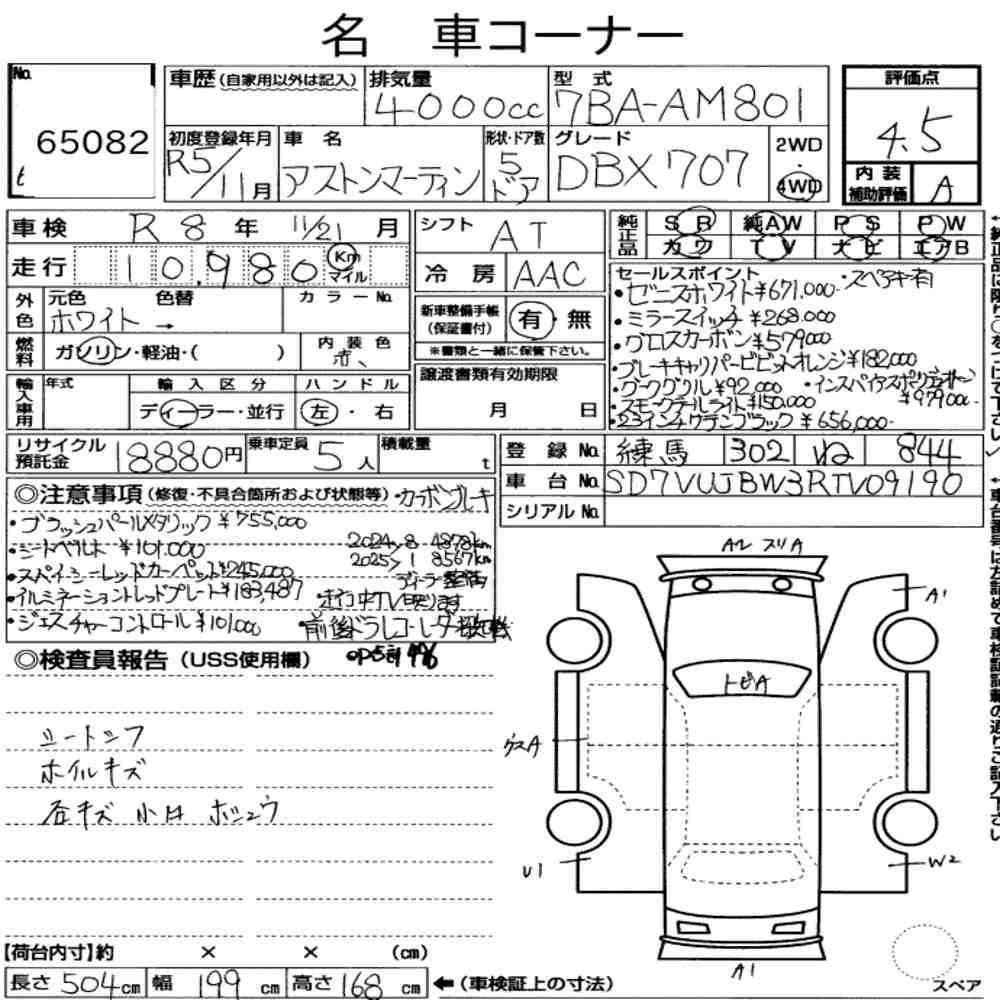 名 車コーナー
No.
65082
車歴(自家用以外は記入)
排気量
4000cc
型 式
7BA-AM801
評価点
4.5
初度登録年月
R5/11月
車 名
アストンマーティン
形状・ドア数
5ドア
グレード
DBX707
2WD
・
4WD
内 装
補助評価
A
車検 R 8 年 11/21 月
走行 10,980 Km マイル
シフト AT
冷 房 AAC
純正品
S R 純AW P S P W
カワ T V ナビ エアB
外色 元色 色替 カラーNo.
ホワイト →
燃料 ガソリン・軽油・( )
内 装 色
赤
新車整備手帳
(保証書付)
有・無
※書類と一緒に保管下さい。
輸入車用 年式 輸 入 区 分 ハ ン ド ル
ディーラー・並行 左・右
譲渡書類有効期限
月 日
セールスポイント ・スペアキー有
・ゼニスホワイト¥671,000-
・ミラースイッチ ¥268,000
・グロスカーボン¥579,000
・ブレーキキャリパービビットオレンジ¥182,000
・ダークグリル ¥92,000
・スモークテールライト¥150,000
¥979,000-
・23インチ ブラック ¥656,000-
リサイクル
預託金
18880円
乗車定員 5 人
積載量 t
登 録 No. 練馬 302 ね 844
車 台 No. SD7VUJBW3RTV09190
シリアルNo.
◎注意事項(修復・不具合箇所および状態等)・カーボンブレーキ
・プラッシュパールメタリック ¥755,000
・シートベルト ¥101,000
2024/8 4878km
2025/1 8567km
・スパイシーレッドカーペット¥245,000
ディーラー整備
・イルミネーショントレッドプレート¥183,487
・走行中TV映ります
・ジェスチャーコントロール¥101,000
・前後ドラレコ・レーダー探知機
◎検査員報告(USS使用欄)
シートシワ
ホイルキズ
各キズ 小凹 ボシュウ
A2 スリA
A1
トビA
ガスA
U1
W2
A1
スペア
【荷台内寸】約 × × (cm)
長さ 504cm 幅 199 cm 高さ 168 cm ←(車検証上の寸法)